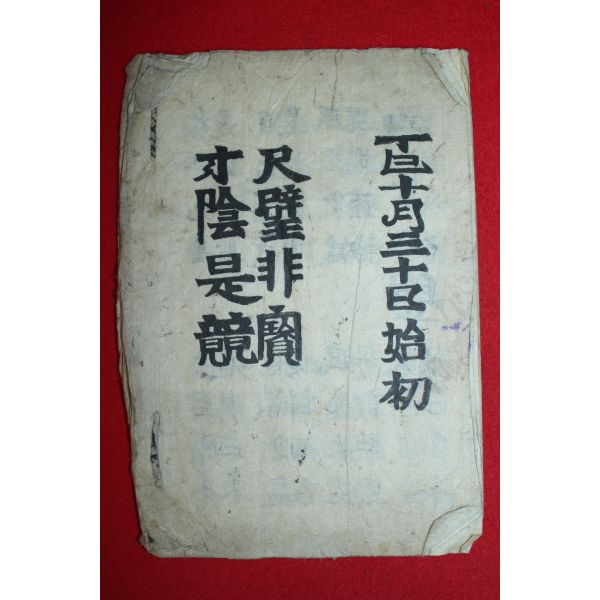 丁丑十月三十日始初
尺璧非寶
寸陰是競